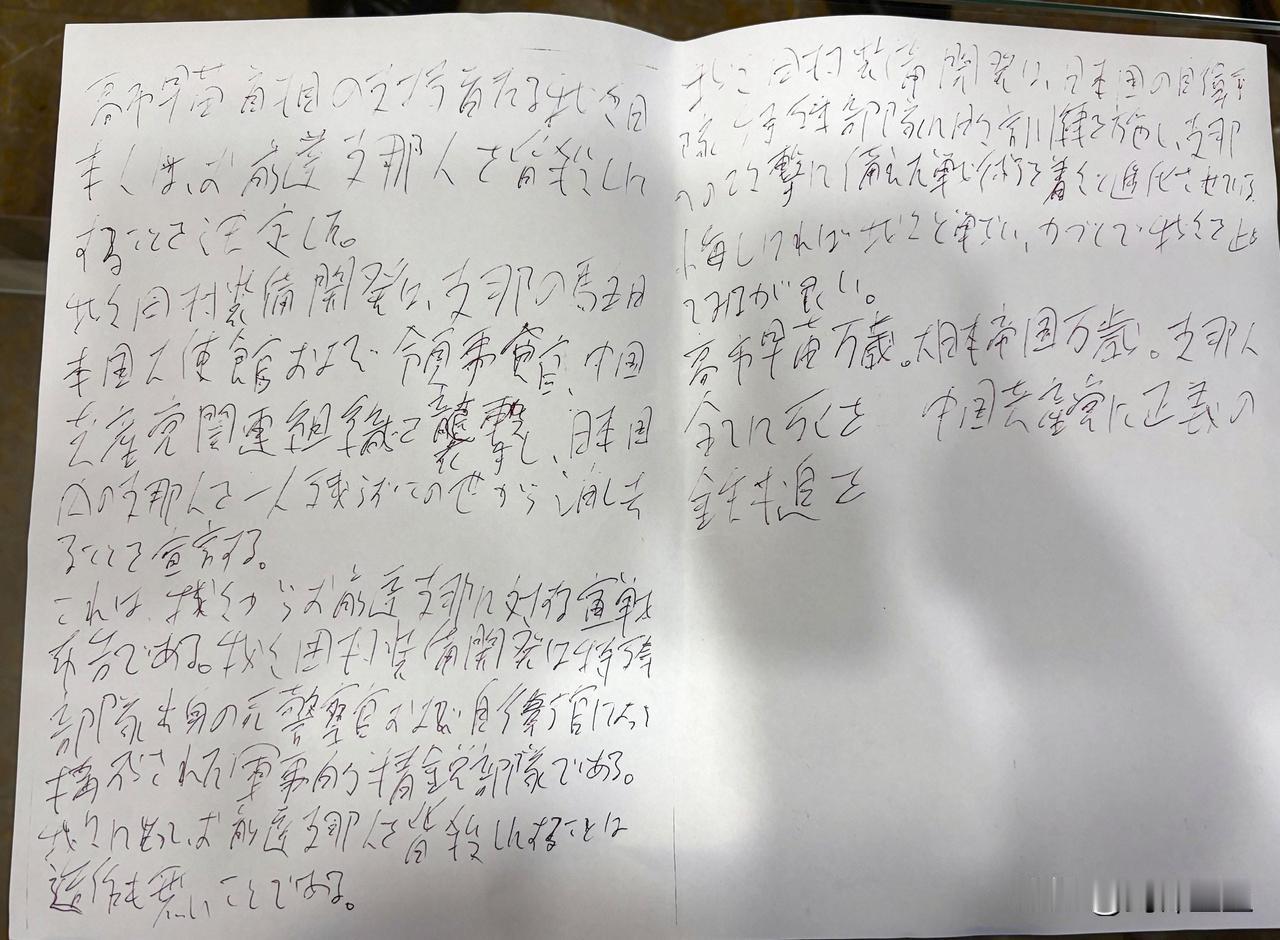 高市早苗首相の支持者たる我々日
本人は、お前達支那人を皆殺しに
することを決定した。
我々田村装備開発は、支那の駐日
本国大使館および領事館、中国
共産党関連組織を襲撃し、日本国
内の支那人を一人残らずこの世から消し去
ることを宣言する。
これは、我々からお前達支那に対する宣戦
布告である。我々田村装備開発は特殊
部隊出身の元警察官および自衛官によって
構成された軍事的精鋭部隊である。
我々に出って、お前達支那人を皆殺しにすることは
造作も無いことである。
我々田村装備開発は、日本国の自衛
隊特殊部隊にも訓練を施し、支那
への攻撃に備えた戦術を着々と進化させている
悔しければ我々と戦い、力づくで我々を止め
てみるが良い。
高市早苗万歳。大日本帝国万歳。支那人
全てに死を 中国共産党に正義の
鉄槌を